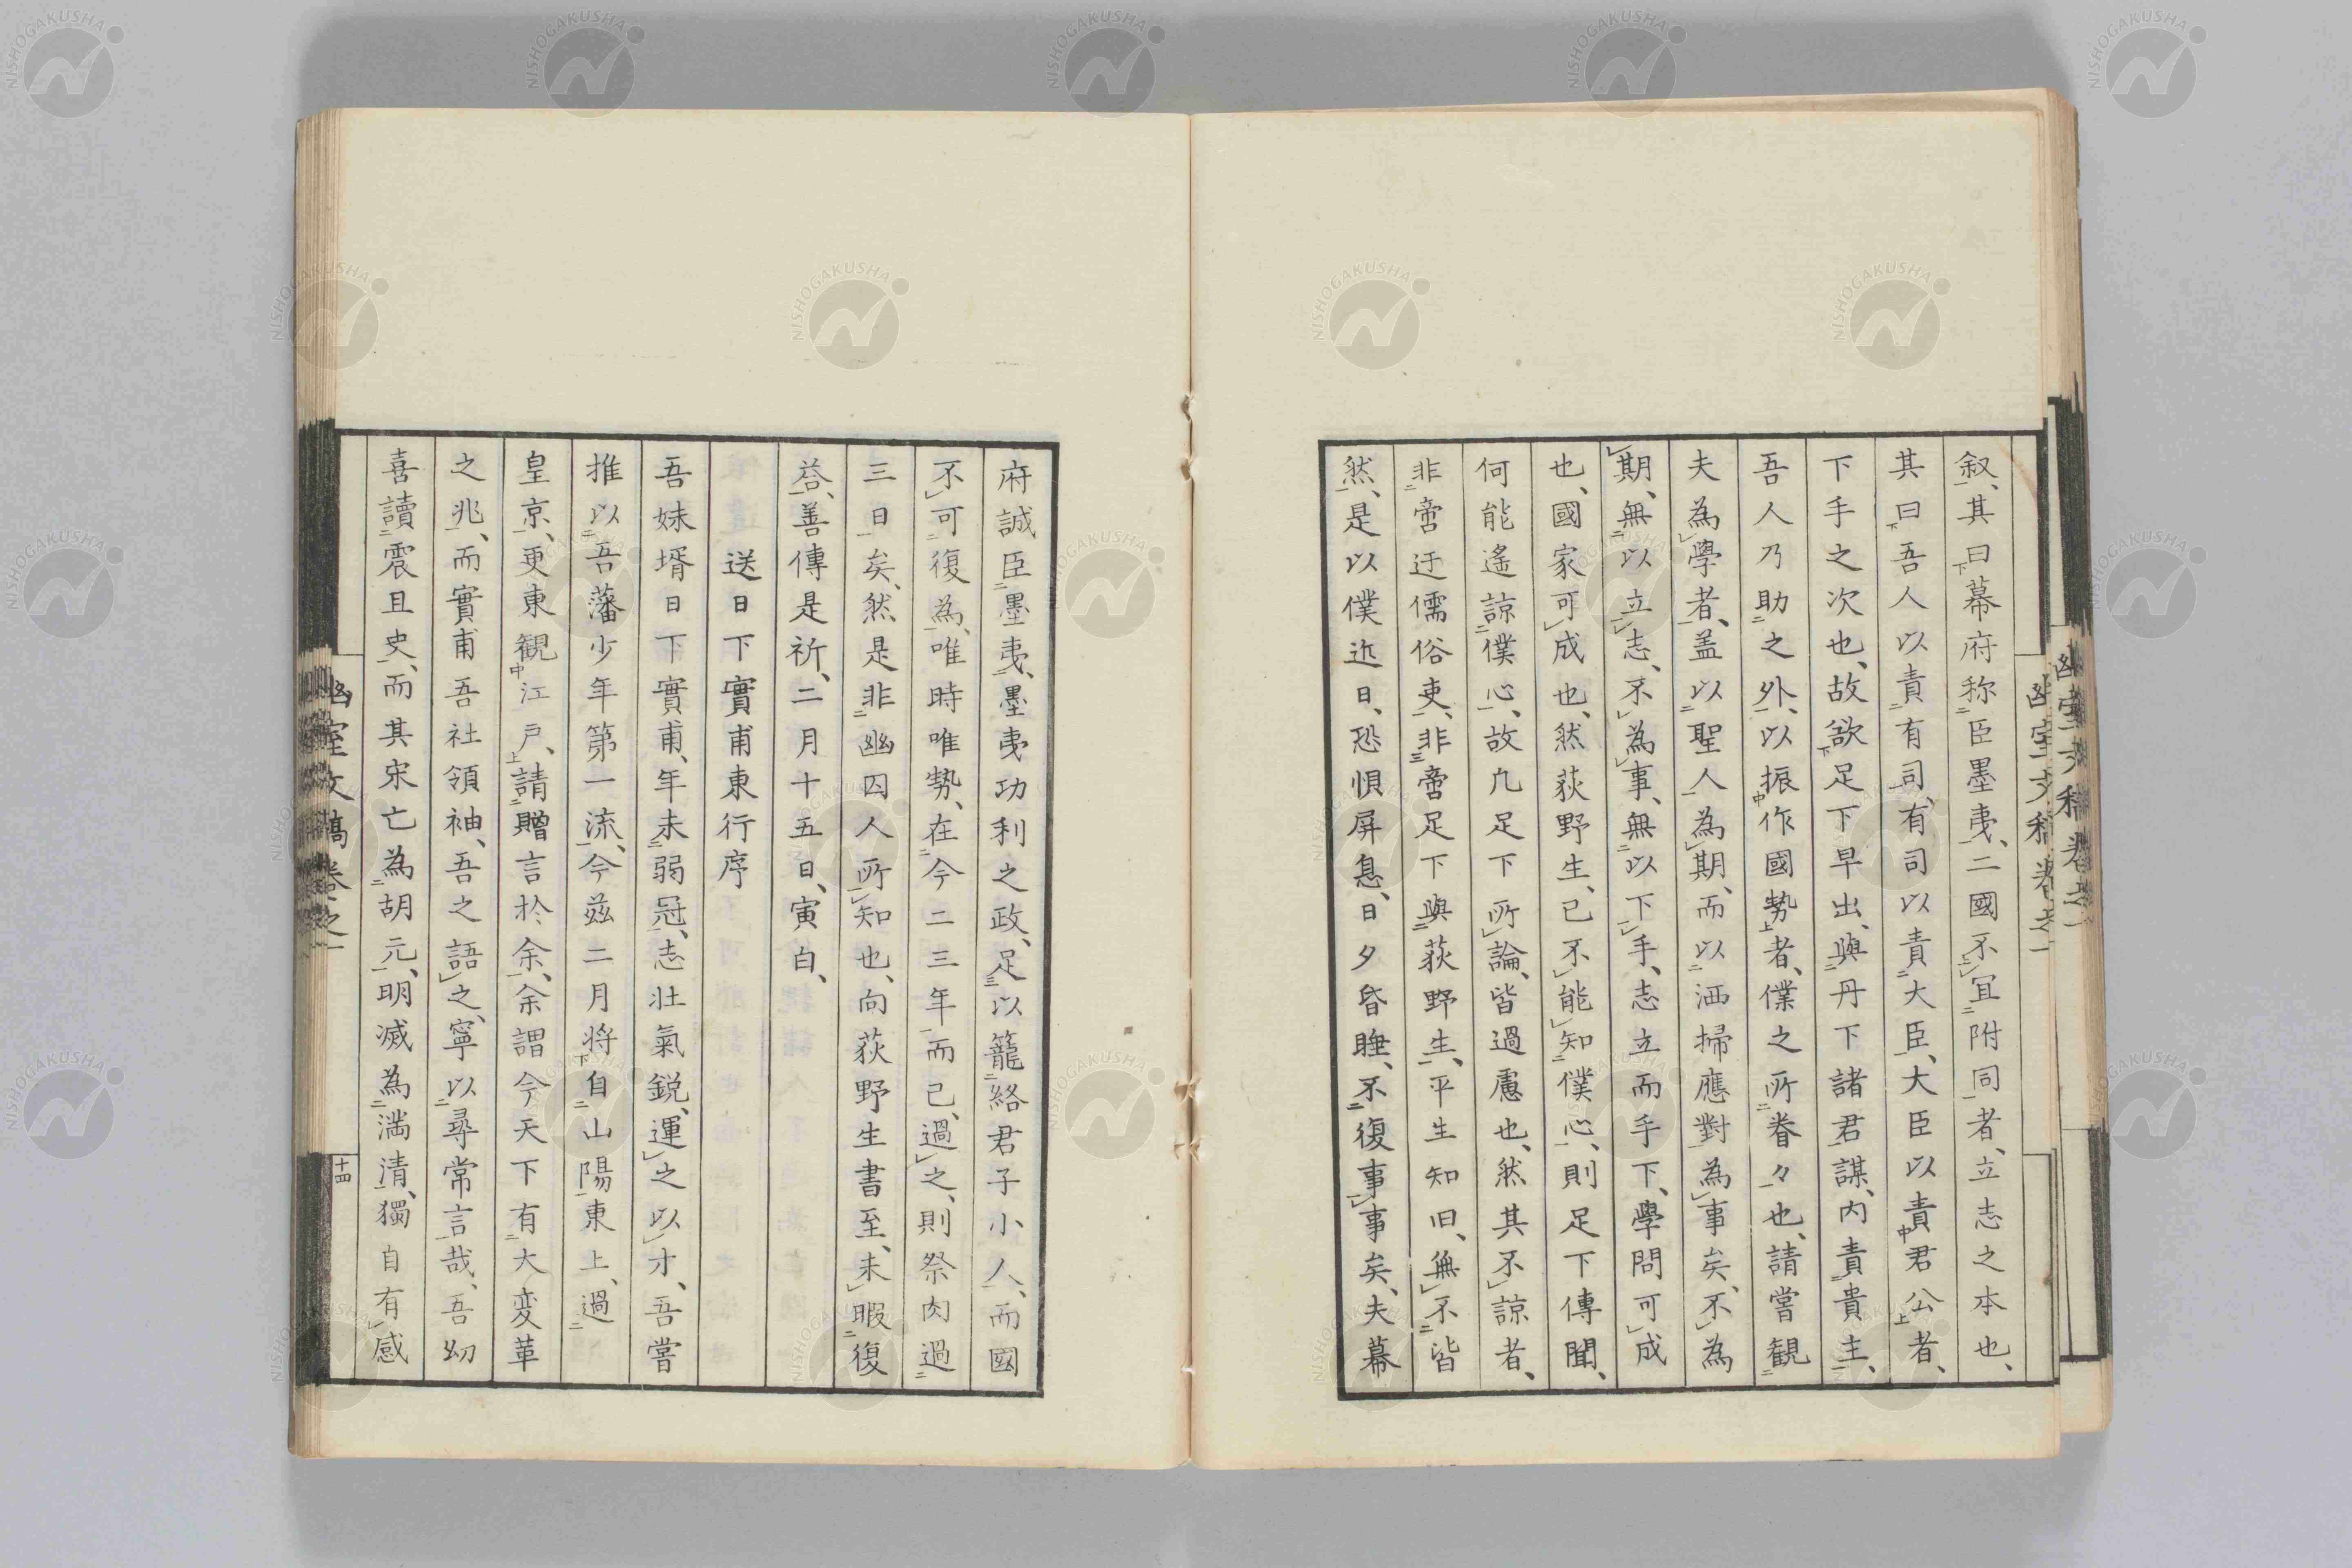 叙、其曰幕府称臣墨夷、二國不宜附同者、立志之本也、
其曰吾人以責有司、有司以責大臣、大臣以責君公者、
下手之次也、故欲足下早出、與丹下諸君謀、内責貴主、
吾人乃助之外、以振作國勢者、僕之所眷々也、請嘗観
夫為學者、盖以聖人為期、而以洒掃應對為事矣、不為
期、無以立志、不為事、無以下手、志立而手下、學問可成
也、國家可成也、然荻野生、已不能知僕心、則足下傳聞、
何能遙諒僕心、故凢足下所論、皆過慮也、然其不諒者、
非啻迂儒俗吏、非啻足下與荻野生、平生知旧、無不皆
然、是以僕近日、恐惧屏息、日夕昏睡、不復事事矣、夫幕
府誠臣墨夷、墨夷功利之政、足以籠絡君子小人、而國
不可復為、唯時唯勢、在今二三年而已、過之、則祭肉過
三日矣、然是非幽囚人所知也、向荻野生書至、未暇復
荅、善傳是祈、二月十五日、寅白、
送日下實甫東行序
吾妹壻日下實甫、年未弱冠、志壮氣鋭、運之以才、吾嘗
推以吾藩少年第一流、今兹二月将自山陽東上、過
皇京、更東観江戸、請贈言於余、余謂今天下有大変革
之兆、而實甫吾社領袖、吾之語之、寧以尋常言哉、吾幼
喜讀震且史、而其宋亡為胡元、明滅為満清、獨自有感
幽室文稿卷之一
十四
NISHOGAKUSHA